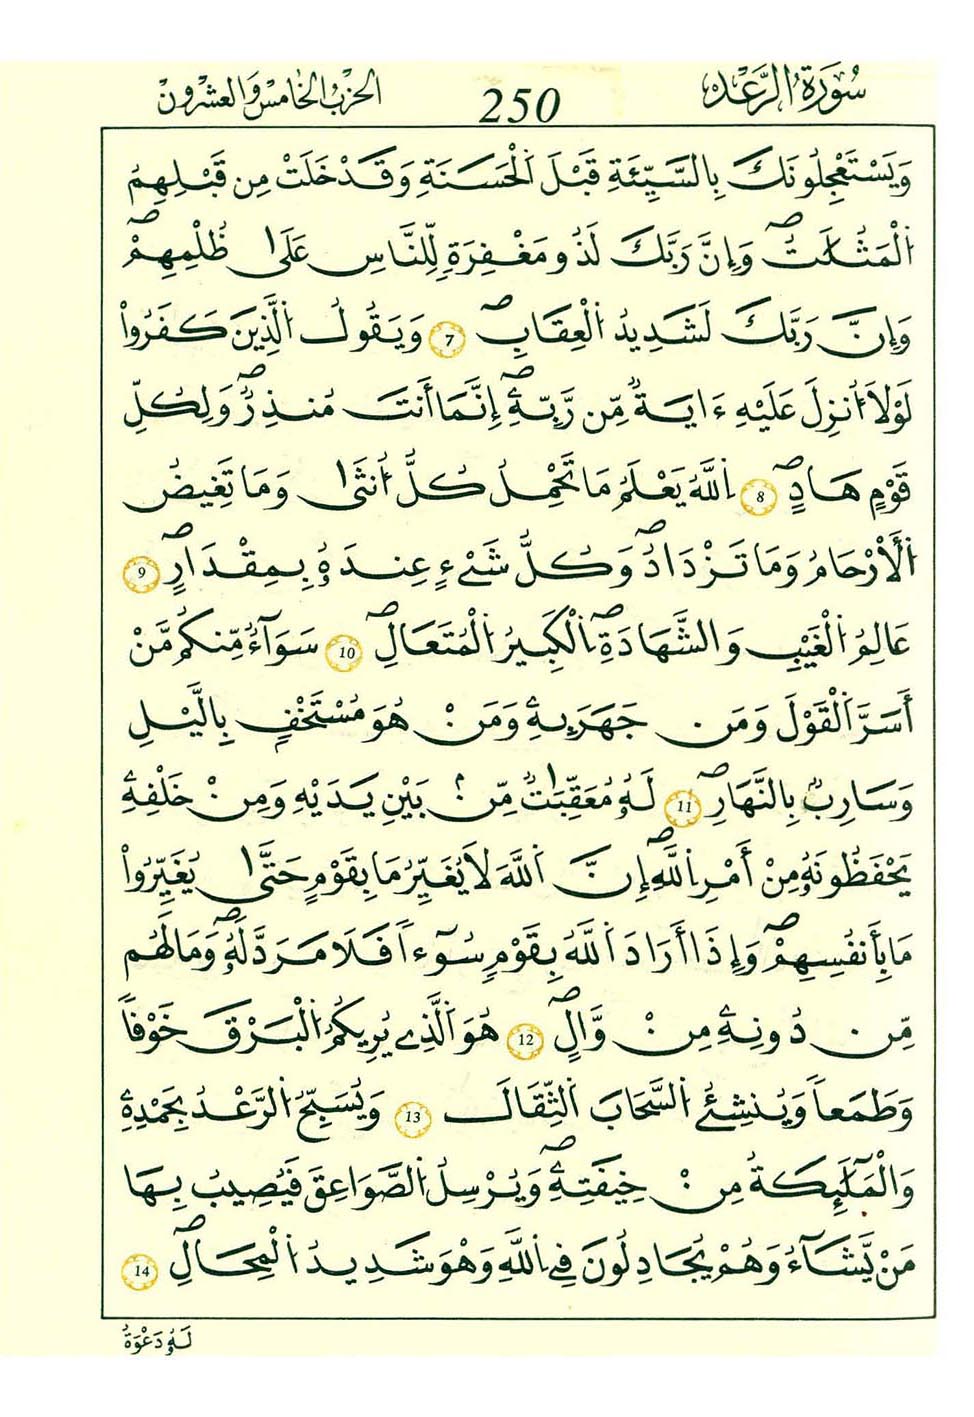 سُورَةُ الرَّعْدِ
250
الحزب الخامس والعشرون
وَيَسْتَعْجِلُونَكَ بِالسَّيِّئَةِ قَبْلَ اَلْحَسَنَةِ وَقَدْ خَلَتْ مِن قَبْلِهِمُ
اُلْمَثُلَٰتُۖ وَإِنَّ رَبَّكَ لَذُو مَغْفِرَةٖ لِّلنَّاسِ عَلَىٰ ظُلْمِهِمْۖ
وَإِنَّ رَبَّكَ لَشَدِيدُ اُلْعِقَابِۖ 7 وَيَقُولُ اُلَّذِينَ كَفَرُواْ
لَوْلَا أُنزِلَ عَلَيْهِ ءَايَةٌ مِّن رَّبِّهِۦۖ إِنَّمَا أَنتَ مُنذِرٌۖ وَلِكُلِّ
قَوْمٍ هَادٍۖ 8 اِللَّهُ يَعْلَمُ مَا تَحْمِلُ كُلُّ أُنثَىٰ وَمَا تَغِيضُ
اُلْأَرْحَامُ وَمَا تَزْدَادُۖ وَكُلُّ شَيْءٍ عِندَهُۥ بِمِقْدَارٍۖ 9
عَالِمُ اُلْغَيْبِ وَالشَّهَادَةِۖ اِلْكَبِيرُ اُلْمُتَعَالِۖ 10 سَوَآءٌ مِّنكُم مَّنْ
أَسَرَّ اَلْقَوْلَ وَمَن جَهَرَ بِهِۦ وَمَنْ هُوَ مُسْتَخْفٍ بِالَّيْلِ
وَسَارِبٌ بِالنَّهَارِۖ 11 لَهُۥ مُعَقِّبَٰتٌ مِّنۢ بَيْنِ يَدَيْهِ وَمِنْ خَلْفِهِۦ
يَحْفَظُونَهُۥ مِنْ أَمْرِ اِللَّهِۖ إِنَّ اَللَّهَ لَا يُغَيِّرُ مَا بِقَوْمٍ حَتَّىٰ يُغَيِّرُواْ
مَا بِأَنفُسِهِمْۖ وَإِذَا أَرَادَ اَللَّهُ بِقَوْمٍ سُوٓءاً فَلَا مَرَدَّ لَهُۥۖ وَمَا لَهُم
مِّن دُونِهِۦ مِنْ وَّالٍۖ 12 هُوَ اَلَّذِے يُرِيكُمُ اُلْبَرْقَ خَوْفاً
وَطَمَعاً وَيُنشِئُ اُلسَّحَابَ اَلثِّقَالَ 13 وَيُسَبِّحُ اُلرَّعْدُ بِحَمْدِهِۦ
وَالْمَلَٰٓئِكَةُ مِنْ خِيفَتِهِۦۖ وَيُرْسِلُ اُلصَّوَاعِقَ فَيُصِيبُ بِهَا
مَنْ يَّشَآءُ وَهُمْ يُجَادِلُونَ فِے اِللَّهِ وَهْوَ شَدِيدُ اُلْمِحَالِۖ 14
لَهُۥ دَعْوَةُ